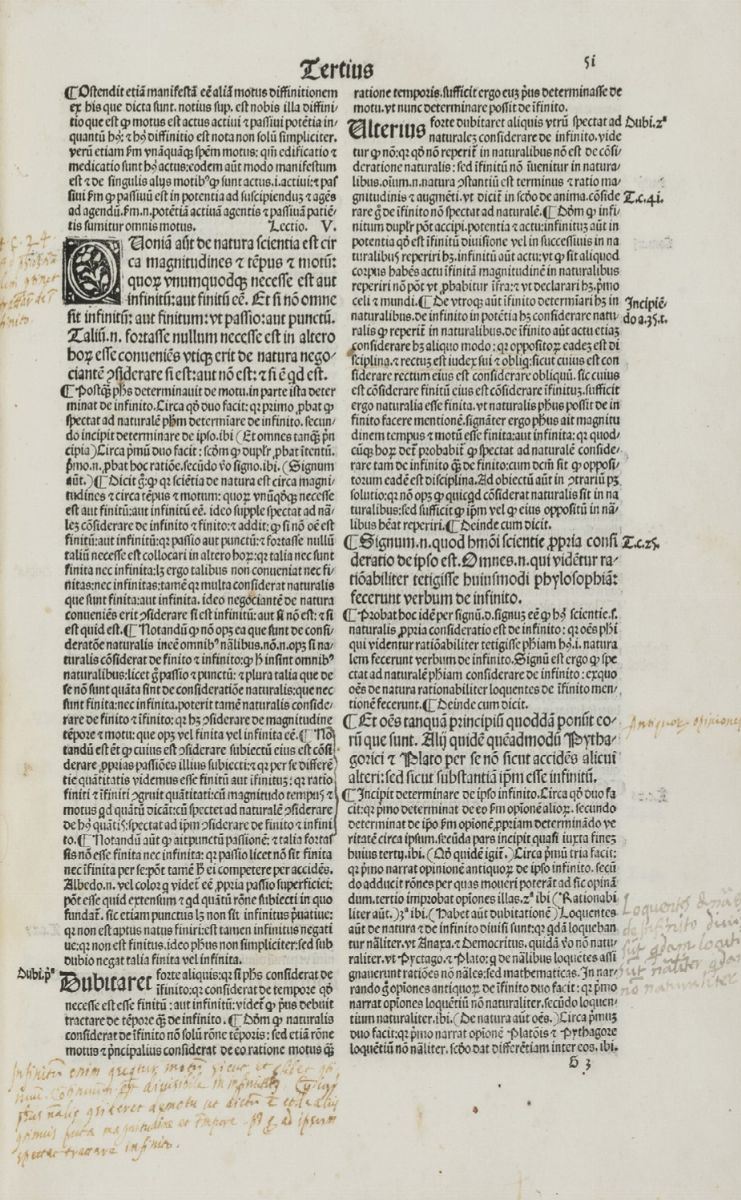 Tertius
51
¶Ostendit etiã manifestã eē aliã motus diffinitionem
ex his que dicta sunt. notius sup. est nobis illa diffini/
tio que est ꝙ motus est actus activi et passivi potētia in/
quantũ hꝫ: et hꝫ diffinitio est nota non solũ simpliciter.
verũ etiam ẜm vnãquãqꝫ spēm motus: qm̃ edificatio et
medicatio sunt hꝫ actus: eodem aũt modo manifestum
est et de singulis alijs motibꝰ ꝙ sunt actus .i. activi: et pas
sivi ẜm ꝙ passivũ est in potentia ad suscipiendũ et agēs
ad agendũ. ẜm .n. potētiã activã agentis et passivã patiē/
tis sumitur omnis motus. Lectio. V.
QUoniã aũt de natura scientia est cir
ca magnitudines et tēpus et motũ:
quoꝝ vnumquodqꝫ necesse est aut
infinitũ: aut finitũ eē. Et si nõ omne
sit infinitũ: aut finitum: vt passio: aut punctũ.
Taliũ .n. fortasse nullum necesse est in altero
hoꝝ esse conveniēs vtiqꝫ erit de natura nego/
ciantē ↄsiderare si est: aut nõ est: et si ē qd est.
¶Postqꝫ phs determinavit de motu. in parte ista deter
minat de infinito. Circa qõ duo facit: qꝛ primo ꝓbat ꝙ
spectat ad naturalē phm determinare de infinito. secun/
do incipit determinare de ipso. ibi (Et omnes tanqꝫ prin
cipia) Circa pmũ duo facit: scdm ꝙ duplr ꝓbat itentũ.
pmo .n. ꝓbat hoc ratiõe. secũdo ꝟo signo. ibi. (Signum
aũt.) ¶Dicit ergo ꝙ qꝛ sciētia de natura est circa magni/
tudines et circa tēpus et motum: quoꝝ vnũqõqꝫ necesse
est aut finitũ: aut infinitũ eē. ideo supple spectat ad nã/
lez cõsiderare de infinito et finito: et addit: ꝙ si nõ oē est
finitũ: aut infinitũ: qꝛ passio aut punctũ: et fortasse nullũ
taliũ necesse est collocari in altero hoꝝ: qꝛ talia nec sunt
finita nec infinita: lꝫ ergo talibus non conveniat nec fi/
nitas: nec infinitas: tamē qꝛ multa considerat naturalis
que sunt finita: aut infinita. ideo negociantē de natura
conveniēs erit ↄsiderare si est infinitũ: aut si nõ est: et si
est quid est. ¶Notandũ ꝙ nõ opꝫ ea que sunt de consi/
deratõe naturalis inēe omnibꝰ nãlibus. nõ .n. opꝫ si na/
turalis cõsiderat de finito et infinito: ꝙ h̃ insint omnibꝰ
naturalibus: licet ergo passio et punctũ: et plura talia que de
se nõ sunt quãta sint de consideratiõe naturalis: que nec
sunt finita: nec infinita. poterit tamē naturalis conside/
rare de finito et infinito: qꝛ hꝫ ↄsiderare de magnitudine
tēpore et motu: que opꝫ vel finita vel infinita eē. ¶No/
tandũ est et ꝙ cuius est ↄsiderare subiectũ eius est cõsi/
derare ꝓprias passiões illius subiecti: et qꝛ per se differē/
tie quãtitatis videmus esse finitũ aut infinitũ: qꝛ ratio
finiti et infiniti ↄgruit quãtitati: cũ magnitudo tempus et
motus qd quãtũ dicãt: cũ spectet ad naturalē ↄsiderare
de hꝫ quãtis: spectat ad ipm ↄsiderare de finito et infini
to. ¶Notandũ aũt ꝙ ait punctũ passionē: et talia fortas
sis nõ esse finita nec infinita: qꝛ passio licet nõ sit finita
nec infinita per se: põt tamē ei competere per accidēs.
Albedo .n. vel color ꝙ videt eē ꝓpria passio superficiei:
põt esse quid extensum et qd quãtũ rõne subiecti in quo
fundaꝶ. sic etiam punctus lꝫ non sit infinitus privative:
qꝛ non est aptus natus finiri: est tamen infinitus negati
ve: qꝛ non est finitus. ideo phus non simpliciter: sed sub
dubio negat talia finita vel infinita.
Dubi. pᵃ
DUbitaret forte aliquis: qꝛ si phs considerat de
infinito: qꝛ considerat de tempore qõ
necesse est esse finitũ: aut infinitũ: videt ꝙ prius debuit
tractare de tēpore qꝫ de infinito. ¶Dõm ꝙ naturalis
considerat de infinito nõ solũ rõne tēporis: sed etiã rõne
motus et principalius considerat de eo ratione motus qꝫ
ratione temporis. sufficit ergo eum prius determinasse de
motu. vt nunc determinare possit de infinito.
Dubi. 2ᵃ
ULterius forte dubitaret aliquis vtrũ spectat ad
naturalez considerare de infinito. vide
tur ꝙ nõ: qꝛ qõ nõ reperiꝶ in naturalibus nõ est de cõsi/
deratione naturalis: sed infinitũ nõ invenitur in natura/
libus. oium .n. natura ↄstantiũ est terminus et ratio ma/
gnitudinis et augmēti. vt dicit in scdo de anima. cõside
T.c.41.
rare ergo de infinito nõ spectat ad naturalē. ¶Dõm ꝙ infi/
nitum duplr põt accipi. potentia et actu: infinitũ aũt in
potentia qõ est infinitũ divisione vel in successivis in na
turalibus reperiri hꝫ. infinitũ aũt actu: vt ꝙ sit aliquod
corpus habēs actu infinitã magnitudinē in naturalibus
reperiri nõ põt vt ꝓbabitur infra: et vt declarari hꝫ. pmo
Incipiē/
do a.35.t.
celi et mundi. ¶De vtroqꝫ aũt infinito determiari hꝫ in
naturalibus. de infinito in potētia hꝫ considerare natu/
ralis ꝙ reperiꝶ in naturalibus. de infinito aũt actu etiaꝫ
considerare hꝫ aliquo modo: qꝛ oppositoꝝ eadē est di/
sciplina. et rectuꝫ est iudex sui et obliq: sicut cuius est con
siderare rectum eius est considerare obliquũ. sic cuius
est cõsiderare finitũ eius est cõsiderare infinitũ. sufficit
ergo naturalia esse finita. vt naturalis phus possit de in
finito facere mentionē. signãter ergo phus ait magnitu
dinem tempus et motũ esse finita: aut infinita: qꝛ quod/
cũqꝫ hoꝝ det ꝓbabit ꝙ spectat ad naturalē conside/
rare tam de infinito qꝫ de finito: cum dcm sit ꝙ opposi/
torum eadē est disciplina. Ad obiectũ aũt in ↄtrariũ pꝫ
solutio: qꝛ nõ opꝫ ꝙ quicqd cõsiderat naturalis sit in na
turalibus: sed sufficit ꝙ ipm vel ꝙ eius oppositũ in nã/
libus hēat reperiri. ¶Deinde cum dicit.
T.c.25.
¶Signum .n. quod hmõi scientie ꝓpria consi
deratio de ipso est. Omnes .n. qui vidētur ra/
tiõabiliter tetigisse huiusmodi phylosophiã:
fecerunt verbum de infinito.
¶Probat hoc idē per signũ. d. signuꝫ eē ꝙ hꝫ scientie .s.
naturalis ꝓpria consideratio est de infinito: qꝛ oēs phi
qui videntur ratiõabiliter tetigisse phiam hꝫ .i. natura
lem fecerunt verbum de infinito. Signũ est ergo ꝙ spe
ctat ad naturalē phiam considerare de infinito: exquo
oēs de natura rationabiliter loquentes de infinito men/
tionē fecerunt. ¶Deinde cum dicit.
Antiquoꝝ opiniones
¶Et oēs tanquã principiũ quoddã ponũt eo/
rũ que sunt. Alij quidē quēadmodũ Pytha/
gorici et Plato per se nõ sicut accidēs alicui
alteri: sed sicut substantiã ipm esse infinitũ.
¶Incipit determinare de ipso infinito. Circa qõ duo fa
cit: qꝛ pmo determinat de eo ẜm opinionē alioꝝ. secundo
determinat de ipo ẜm opionē ꝓpriam determinãdo ve
ritatē circa ipsum. secũda pars incipit quasi iuxta finez
huius tertij. ibi. (Qõ quidē igit.) Circa pmũ tria facit:
qꝛ pmo narrat opinionē antiquoꝝ de ipso infinito. secũ
do adducit rõnes per quas moveri poterãt ad sic opinã
dum. tertio improbat opiões illas. 2ᵃ ibi (Rationabi
liter aũt.) 3ᵃ ibi. (Habet aũt dubitationē) Loquentes
aũt de natura et de infinito divisi sunt: qꝛ qdã loqueban
tur nãliter. vt Anaxa. et Democritus. quidã ꝟo nõ natu
raliter. vt Pyctago. et Plato: ꝙ de nãlibus loquētes assi
gnaverunt ratiões nõ nãles: sed mathematicas. In nar/
rando ergo opiões antiquoꝝ de infinito duo facit: qꝛ pmo
narrat opiões loquentiũ nõ naturaliter. secũdo loquen/
tium naturaliter. ibi. (De natura aũt oēs.) Circa pmũ
duo facit: qꝛ pmo narrat opionē Platõis et Pythagore
loquētiũ nõ nãliter. scdo dat differētiam inter eos. ibi.
G 3